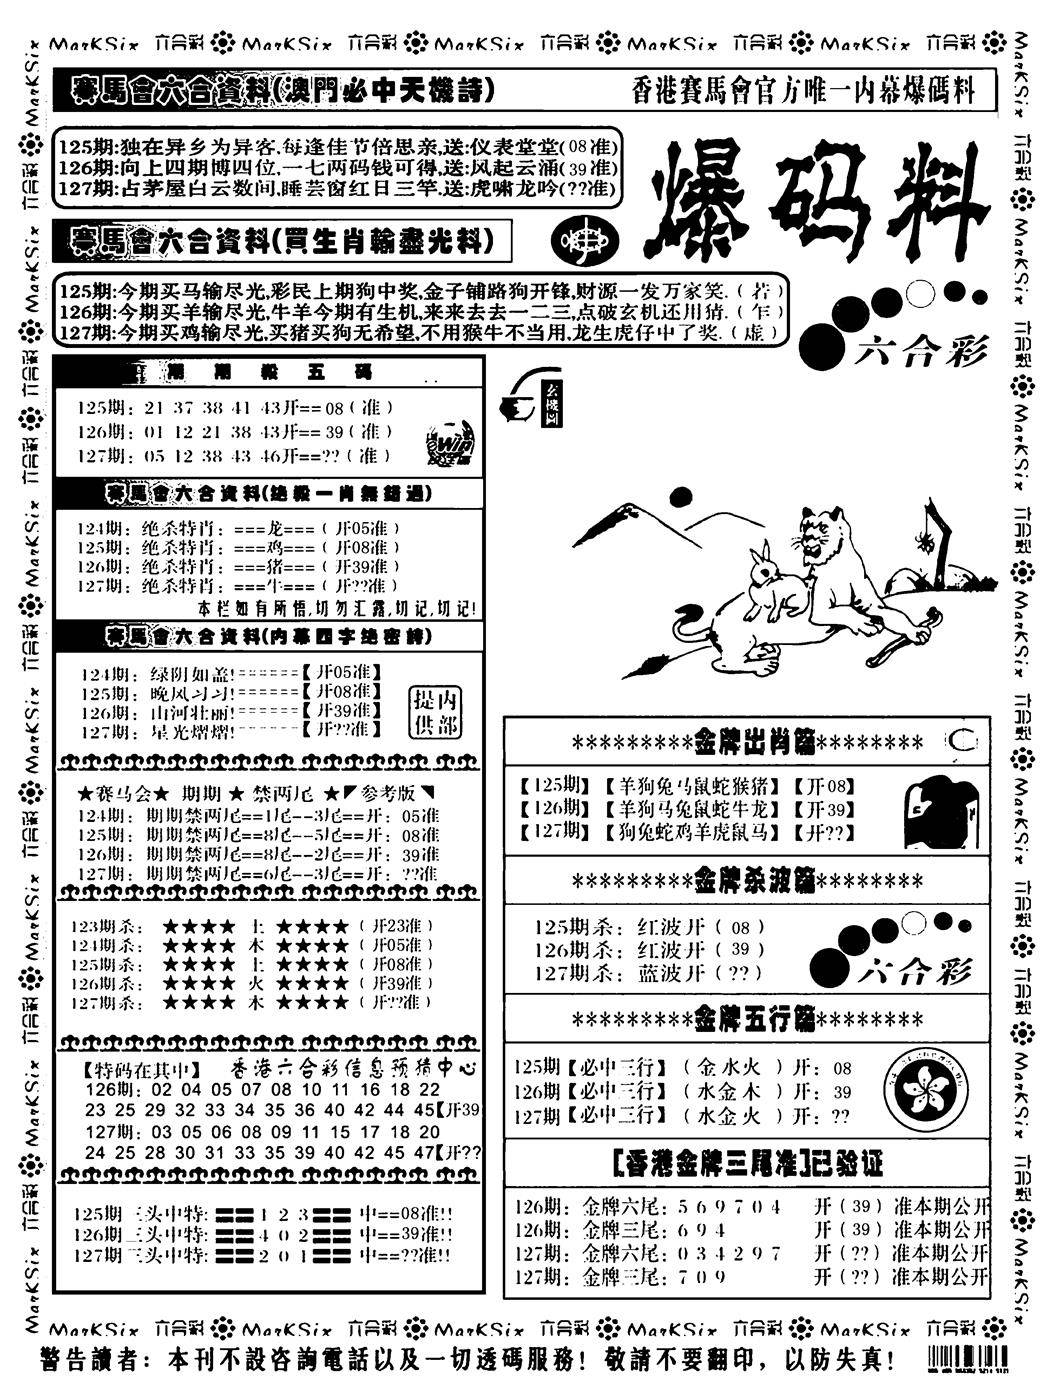 MarKSix 六合彩 MarKSix 六合彩 MarKSix 六合彩 MarKSix 六合彩 MarKSix 六合彩
賽馬會六合資料(澳門必中天機詩)
香港賽馬會官方唯一内幕爆碼料
125期:独在异乡为异客.每逢佳节倍思亲,送:仪表堂堂(08准)
126期:向上四期博四位,一七两码钱可得,送:风起云涌(39准)
127期:占茅屋白云数间,睡芸窗红日三竿,送:虎啸龙吟(??准)
爆码料
賽馬會六合資料(買生肖輸盡光料)
125期:今期买马输尽光,彩民上期狗中奖,金子铺路狗开锋,财源一发万家笑.(若)
126期:今期买羊输尽光,牛羊今期有生机,来来去去一二三,点破玄机还用猪.(乍)
127期:今期买鸡输尽光,买猪买狗无希望,不用猴牛不当用,龙生虎仔中了奖.(虚)
六合彩
期期殺五碼
125期: 21 37 38 41 43开==08(准)
126期: 01 12 21 38 43开==39(准)
127期: 05 12 38 43 46开==??(准)
玄機圖
賽馬會六合資料(绝殺一肖無錯過)
124期: 绝杀特肖: ===龙===(开05准)
125期: 绝杀特肖: ===鸡===(开08准)
126期: 绝杀特肖: ===猪===(开39准)
127期: 绝杀特肖: ===牛===(开??准)
本栏如有所悟,切勿汇露,切记,切记!
賽馬會六合資料(内幕四字绝密詩)
124期: 绿阴如盖!======【开05准】
125期: 晚风习习!======【开08准】
126期: 山河壮丽!======【开39准】
127期: 星光熠熠!======【开??准】
内部提供
★赛马会★ 期期 ★ 禁两尾 ★参考版
124期: 期期禁两尾==1尾--3尾==开: 05准
125期: 期期禁两尾==8尾--5尾==开: 08准
126期: 期期禁两尾==8尾--2尾==开: 39准
127期: 期期禁两尾==6尾--3尾==开: ??准
123期杀: ★★★★ 土 ★★★★(开23准)
124期杀: ★★★★ 木 ★★★★(开05准)
125期杀: ★★★★ 土 ★★★★(开08准)
126期杀: ★★★★ 火 ★★★★(开39准)
127期杀: ★★★★ 木 ★★★★(开??准)
【特码在其中】 香港六合彩信息预猜中心
126期: 02 04 05 07 08 10 11 16 18 22
23 25 29 32 33 34 35 36 40 42 44 45【开39
127期: 03 05 06 08 09 11 15 17 18 20
24 25 28 30 31 33 35 39 40 42 45 47【开??
125期 三头中特: 1 2 3 中==08准!!
126期 三头中特: 4 0 2 中==39准!!
127期 三头中特: 2 0 1 中==??准!!
*********金牌出肖篇********
【125期】【羊狗兔马鼠蛇猴猪】【开08】
【126期】【羊狗马兔鼠蛇牛龙】【开39】
【127期】【狗兔蛇鸡羊虎鼠马】【开??】
*********金牌杀波篇********
125期杀: 红波开(08)
126期杀: 红波开(39)
127期杀: 蓝波开(??)
六合彩
*********金牌五行篇********
125期【必中三行】(金水火)开: 08
126期【必中三行】(水金木)开: 39
127期【必中三行】(水金火)开: ??
[香港金牌三尾准]已验证
126期: 金牌六尾: 5 6 9 7 0 4 开(39)准本期公开
126期: 金牌三尾: 6 9 4 开(39)准本期公开
127期: 金牌六尾: 0 3 4 2 9 7 开(??)准本期公开
127期: 金牌三尾: 7 0 9 开(??)准本期公开
MarKSix 六合彩 MarKSix 六合彩 MarKSix 六合彩 MarKSix 六合彩 MarKSix 六合彩
警告讀者: 本刊不設咨詢電話以及一切透碼服務! 敬請不要翻印, 以防失真!